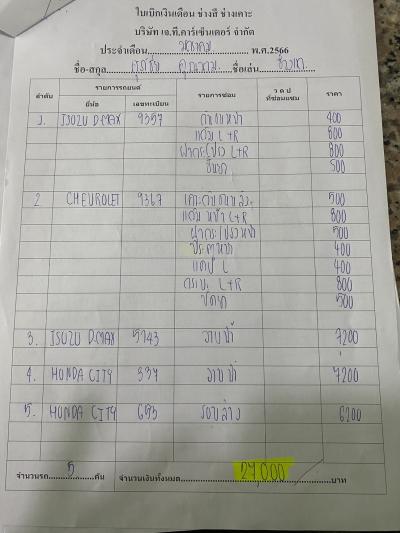 ใบเบิกเงินเดือน ช่างสี ช่างเคาะ
บริษัท เจ.ที.คาร์เซ็นเตอร์ จำกัด
ประจำเดือน มกราคม พ.ศ.2566
ชื่อ-สกุล ชื่อเล่น
ลำดับ รายการรถยนต์ รายการซ่อม ว ด ป ที่ซ่อมแซม ราคา
ยี่ห้อ เลขทะเบียน
1. ISUZU D-MAX 9357 กันชนหน้า 400
แก้ม L+R 800
ฝากระโปรง L+R 800
500
2 CHEVROLET 9367 500
แก้มหน้า L+R 800
ฝากระโปรงหน้า 500
400
L 400
กระบะ L+R 800
500
3. ISUZU D-MAX 5743 7200
4. HONDA CITY 337 7200
5. HONDA CITY 693 รอบล่าง 6200
จำนวนรถ 5 คัน จำนวนเงินทั้งหมด 27,000 บาท